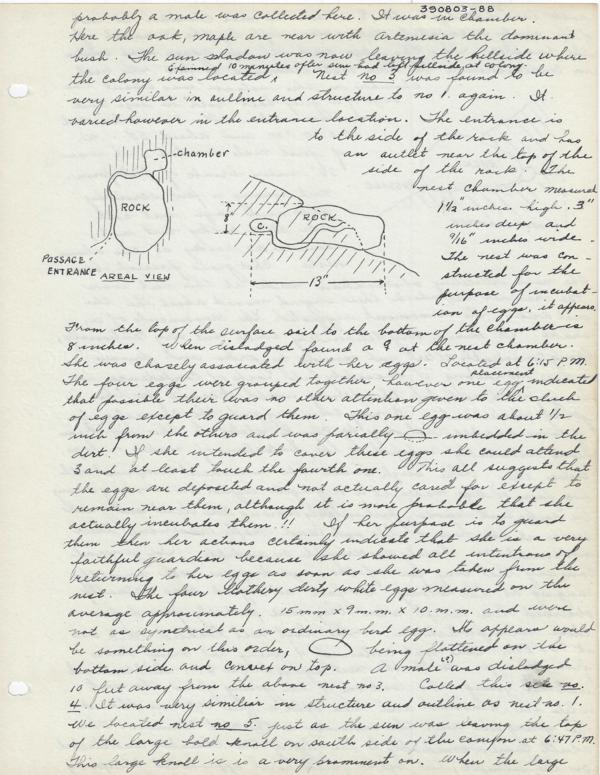 390803-88
probably a male was collected here. It was in chamber.
Here the oak, maple are near with Artemesia the dominant
bush. The sun shadow was now leaving the hillside where
Examined 10 minutes after sun had left hillside at 60 tong.
the colony was located. Nest no 3 was found to be
very similar in outline and structure to no 1. again. It
varied however in the entrance location. The entrance is
to the side of the rock and has
an outlet near the top of the
side of the rock. The
nest chamber measured
1 1/2 inches high. 3"
inches deep and
9/16" inches wide.
The nest was con-
structed for the
purpose of incubat-
ion of eggs, it appears.
chamber
ROCK
PASSAGE
ENTRANCE
AREAL VIEW
8"
C.
ROCK
13"
From the top of the surface soil to the bottom of the chamber is
8 inches. When dislodged found a ♀ at the nest chamber.
She was closely associated with her eggs. Located at 6:15 P.M.
The four eggs were grouped together, however one egg placement indicated
that possible their was no other attention given to the clutch
of eggs except to guard them. This one egg was about 1/2
inch from the others and was parially imbedded in the
dirt. If she intended to cover these eggs she could attend
3 and at least touch the fourth one. This all suggests that
the eggs are deposited and not actually cared for except to
remain near them, although it is more probable that she
actually incubates them.!! If her purpose is to guard
them then her actions certainly indicate that she is a very
faithful guardian because she showed all intentions of
returning to her eggs as soon as she was taken from the
nest. The four leathery dirty white eggs measured on the
average approximately. 15 mm x 9 m.m. x 10. m.m. and were
not as symetrical as an ordinary bird egg. Its appears would
be something on this order, being flattened on the
bottom side and convex on top. A male (?) was dislodged
10 feet away from the above nest no 3. Called this site no.
4. It was very similiar in structure and outline as nest no. 1.
We located nest no 5. just as the sun was leaving the top
of the large bold knoll on south side of the canyon at 6:47 P.M.
This large knoll is is a very prominent on. When the large